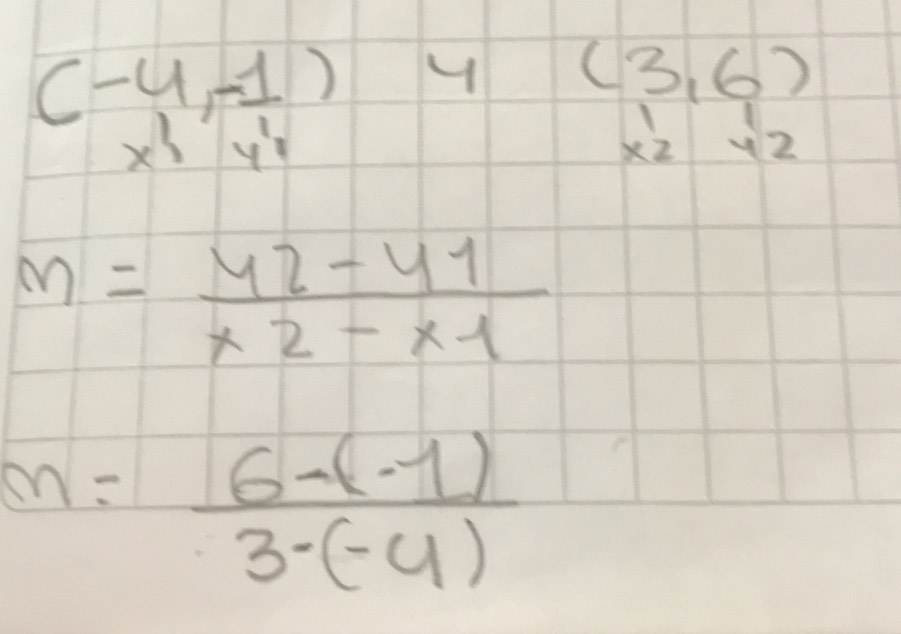 (-4,-1) y (3,6)
x1 y1 x2 y2
m = y2 - y1
x2 - x1
m = 6-(-1)
3-(-4)